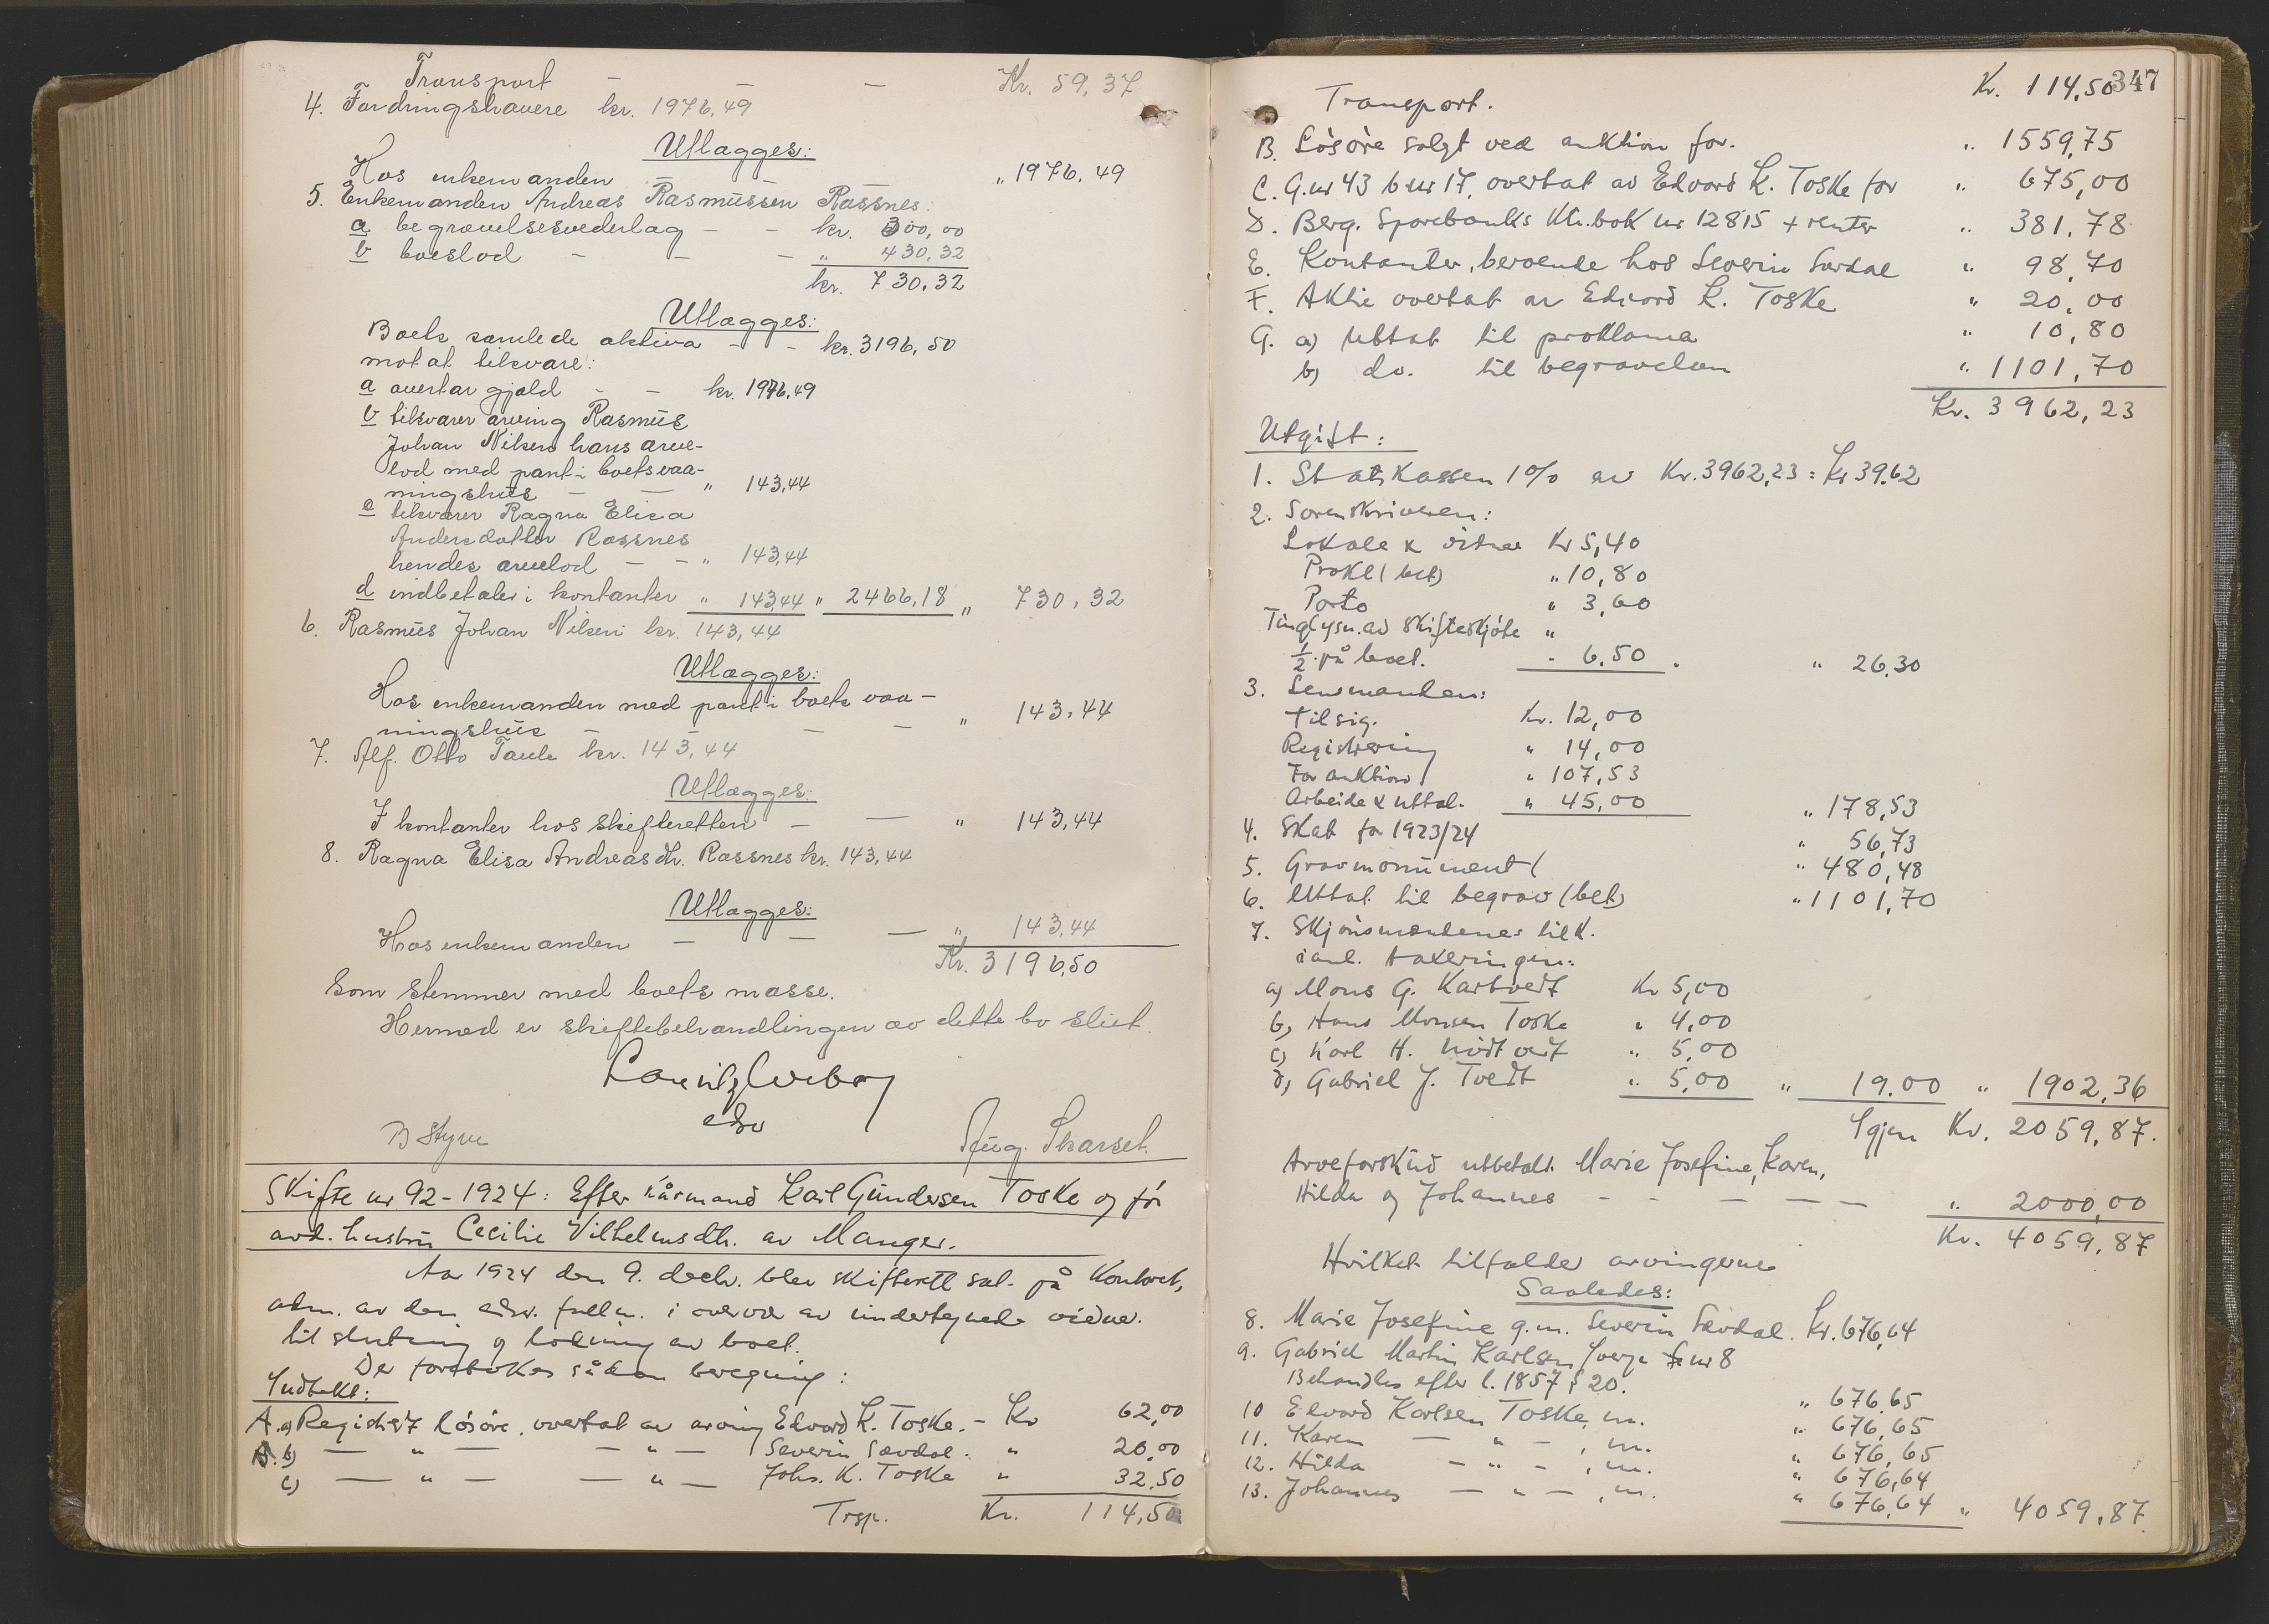 Transport — — — Kr. 59,37
4. Fordringshavere kr. 1976,49
Utlægges:
Hos enkemanden — — — " 1976,49
5. Enkemanden Andreas Rasmussen Rossnes:
a begravelsesvederlag - - kr. 300,00
b boeslod - - - " 430,32
kr. 730,32
Utlægges:
Boets samlede aktiva - - kr. 3196,50
mot at tilsvare:
a overtar gjæld - - kr. 1976,49
b tilsvarer arving Rasmus
Johan Nilsen hans arve-
lod med pant i boets vaa-
ningshus — — " 143,44
c tilsvarer Ragna Elisa
Andersdatter Rossnes
hendes arvelod — - " 143,44
d indbetaler i kontanter " 143,44 " 2466,18 " 730,32
6. Rasmus Johan Nilsen kr. 143,44
Utlægges:
Hos enkemanden med pant i boets vaa-
ningshus — — — " 143,44
7. Alf. Otto Taule kr. 143,44
Utlægges:
I kontanter hos skifteretten — — " 143,44
8. Ragna Elisa Andreasdtr. Rossnes kr. 143,44
Utlægges:
Hos enkemanden — — — " 143,44
Kr. 3196,50
Som stemmer med boets masse.
Hermed er skiftebehandlingen av dette bo slut.
edsv
B Styve Aug. Skarset.
Skifte nr 92 - 1924: Efter kårmand Karl Gundersen Toske og før
avd. hustru Cecilie Vilhelmsdtr. av Manger.
Aar 1924 den 9. decbr. blev skifterett sat på Kontoret,
adm. av den edsv. fullm. i overvær av undertegnede vidne.
til slutning og lodning av boet.
Der foretokes sådan beregning:
Indtekt:
A. a) Registrert løsøre, overtat av arving Edvard K. Toske. - Kr 62,00
b) — " — — " — Severin Sævdal. " 20,00
c) — " — — " — Johs. K. Toske " 32,50
Trsp. Kr. 114,50
347
Transport. Kr. 114,50
B. Løsøre solgt ved auktion for. " 1559,75
C. G.nr 43 b nr 17, overtat av Edvard K. Toske for " 675,00
D. Berg. Sparebanks ktr.bok nr 12815 + renter " 381,78
E. Kontanter, beroende hos Severin Sævdal " 98,70
F. Aktie overtat av Edvard K. Toske " 20,00
G. a) Uttat til proklama " 10,80
b) do. til begravelsen " 1101,70
Kr. 3962,23
Utgift:
1. Statskassen 1% av Kr. 3962,23 = Kr 39.62
2. Sorenskriveren:
Lokale & vidner Kr 5,40
Prokl (bet) " 10,80
Porto " 3,60
Tinglysn. av skifteskjøte "
½ på boet. - 6.50 " 26,30
3. Lensmanden:
Tilsig. Kr. 12,00
Registrering " 14,00
For auktion " 107,53
Arbeide & uttal. " 45,00 " 178,53
4. Skat for 1923/24 " 56,73
5. Gravmonument ( " 480,48
6. Uttat til begrav (bet) " 1101,70
7. Skjønsmændenes tilk.
i anl. takseringen:
a) Mons G. Kartveit Kr 5,00
b) Hans Monsen Toske " 4,00
c) Karl H. " 5,00
d) Gabriel J. Tveit " 5,00 " 19.00 " 1902,36
Igjen Kr. 2059,87.
Arveforskud utbetalt Marie Josefine, Karen,
Hilda og Johannes - - — — — " 2000,00
Kr. 4059,87
Hvilket tilfalder arvingerne
Saaledes:
8. Marie Josefine g.m. Severin Sævdal. Kr. 676,64
9. Gabriel Martin Karlsen, verge nr 8
Behandles efter l. 1857 § 20. " 676,65
10 Edvard Karlsen Toske, m. " 676,65
11. Karen — " — , m. " 676,65
12. Hilda — " — , m. " 676,64
13. Johannes — " — , m. " 676,64 " 4059,87.